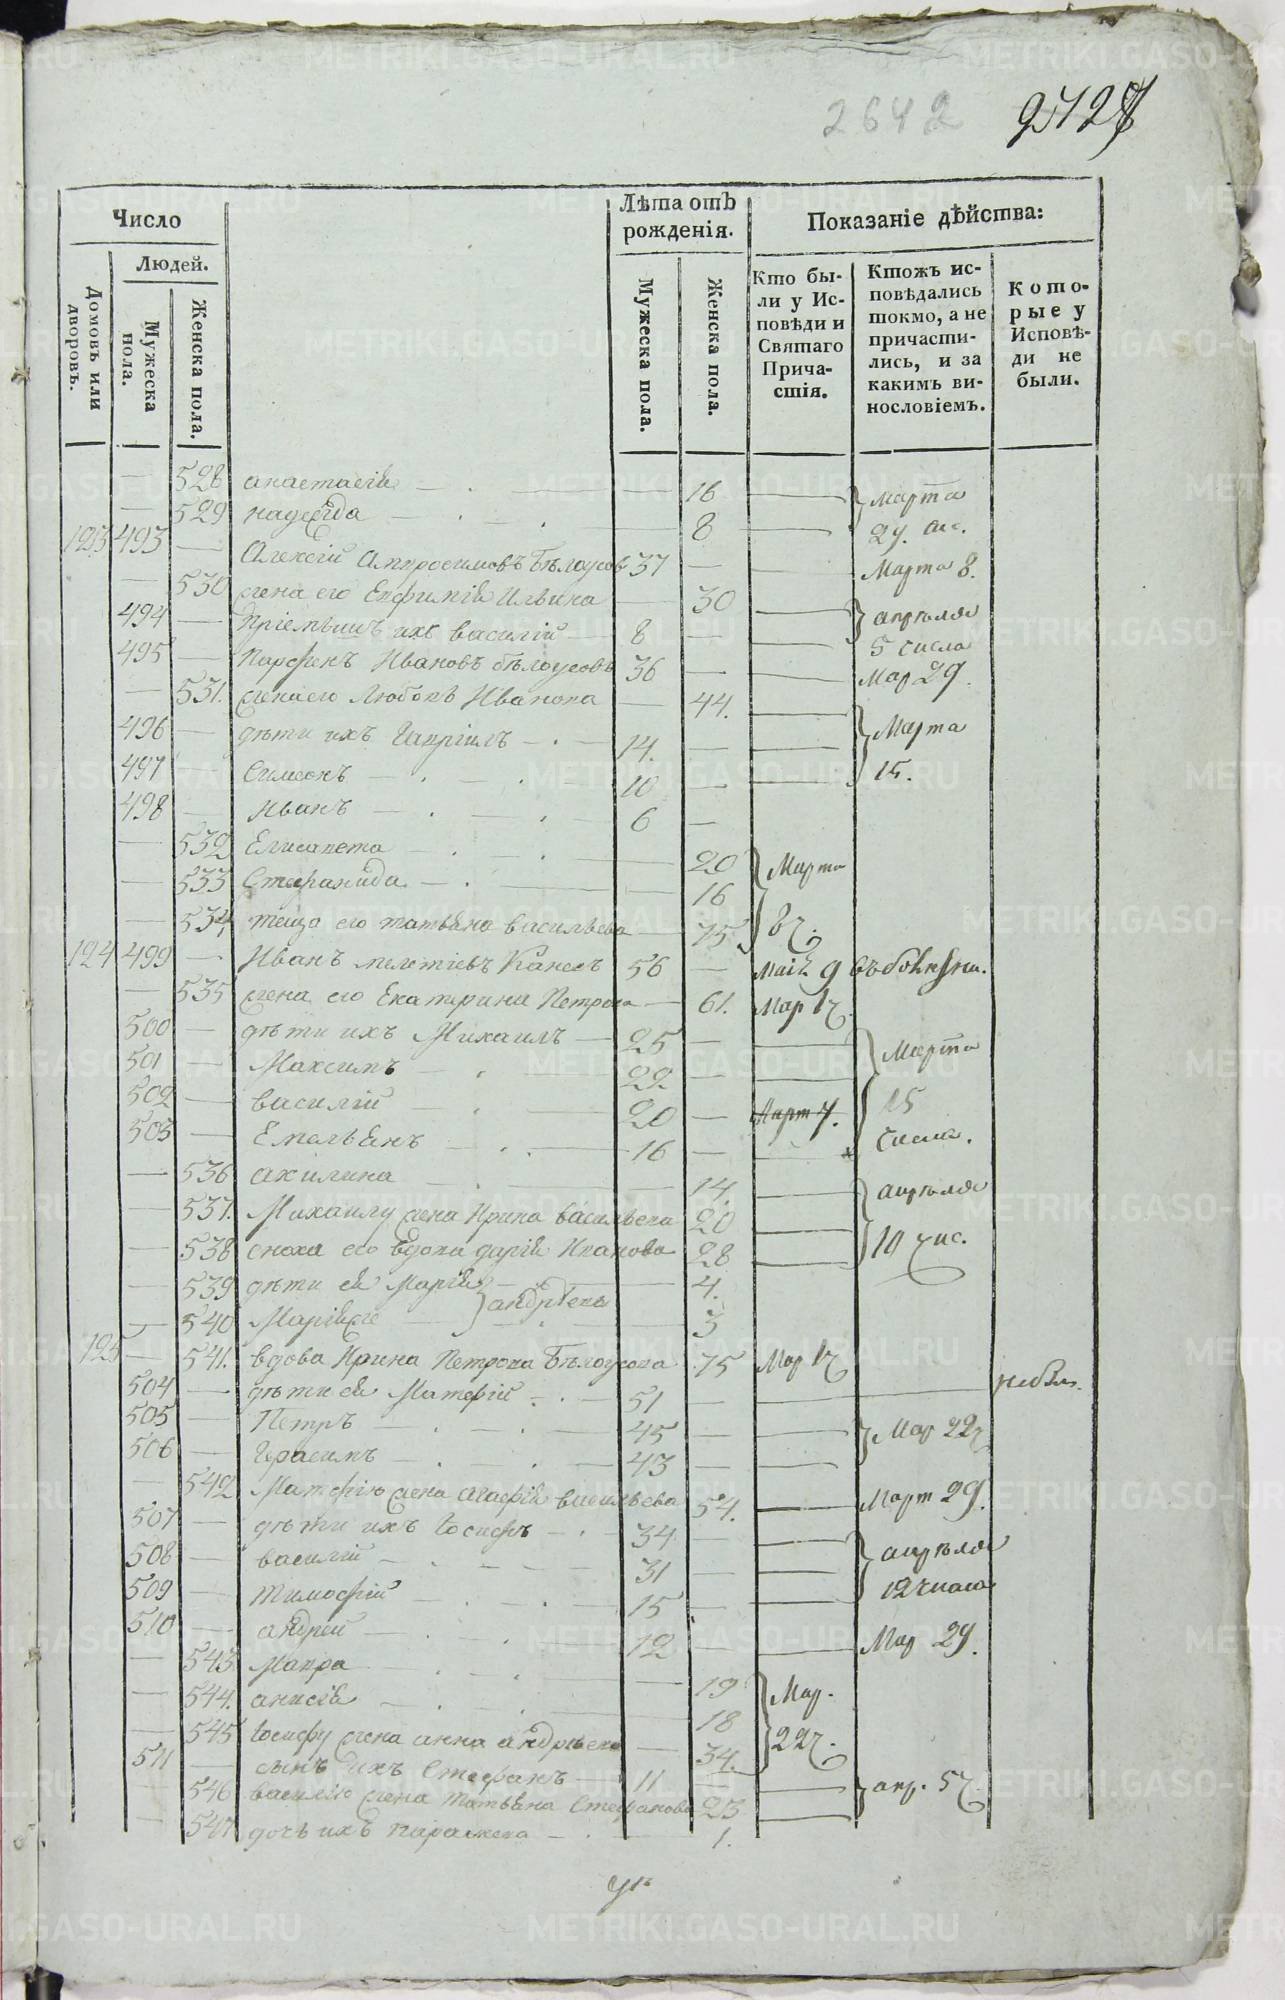 2642
Число
Людей.
Домовъ или дворовъ.
Мужеска пола.
Женска пола.
Лѣта отъ рожденія.
Мужеска пола.
Женска пола.
Показаніе дѣйства:
Кто бы-
ли у Ис-
повѣди и
Святаго
Прича-
стія.
Ктожъ ис-
повѣдались
токмо, а не
причасти-
лись, и за
какимъ ви-
нословіемъ.
Кото-
рые у
Исповѣ-
ди не
были.
528 анастасія 16 Марта
529 надежда 8 29. чис.
123 493 Алексій Амвросимовъ Бѣлоусовъ 37 Марта 8.
530 жена его Евфимія Ильина 30 апрѣля
494 Пріемышъ ихъ василій 8 5 числа
495 Парфенъ Ивановъ бѣлоусовъ 36 Мар 29.
531. жена его Любовь Иванова 44.
496 дѣти ихъ Гавріилъ 14. Марта
497 Симеонъ 10 15.
498 Иванъ 6
532 Елисавета 20 Марта
533 Стефанида 16
534 теща его татьяна васильева 75 8ч.
124 499 Иванъ мелетіевъ 56 Маія 9 въ болѣзни.
535 жена его Екатерина Петрова 61. Мар 1ч
500 дѣти ихъ Михаилъ 25 Марта
501 Максимъ 22
502 василій 20 Март 7. 15
503 Емельянъ 16 числа.
536 акилина 14. апрѣля
537. Михаилу жена Ирина васильева 20
538 сноха его вдова дарія Иванова 28 10 чис.
539 дѣти ея Марія 4.
андрѣевы
540 Марія же 3
125 541. вдова Ирина Петрова Бѣлоусова 75 Мар 1ч
504 дѣти ея Матфій 51 небыл.
505 Петръ 45 Мар 22ч
506 Герасимъ 43
542 Матфію жена агафія васильева 54. Март 29.
507 дѣти ихъ Іосифъ 34 апрѣля
508 василій 31
509 тимофій 15 12 числа
510 андрей 12 Мар 29.
543 Мавра 19 Мар.
544. анисія 18
545 Іосифу жена анна андрѣева 34. 22ч.
511 сынъ ихъ Стефанъ 11 апр. 5ч
546 василію жена татьяна Стефанова 23
547 дочь ихъ параскева 1.
METRIKI.GASO-URAL.RU